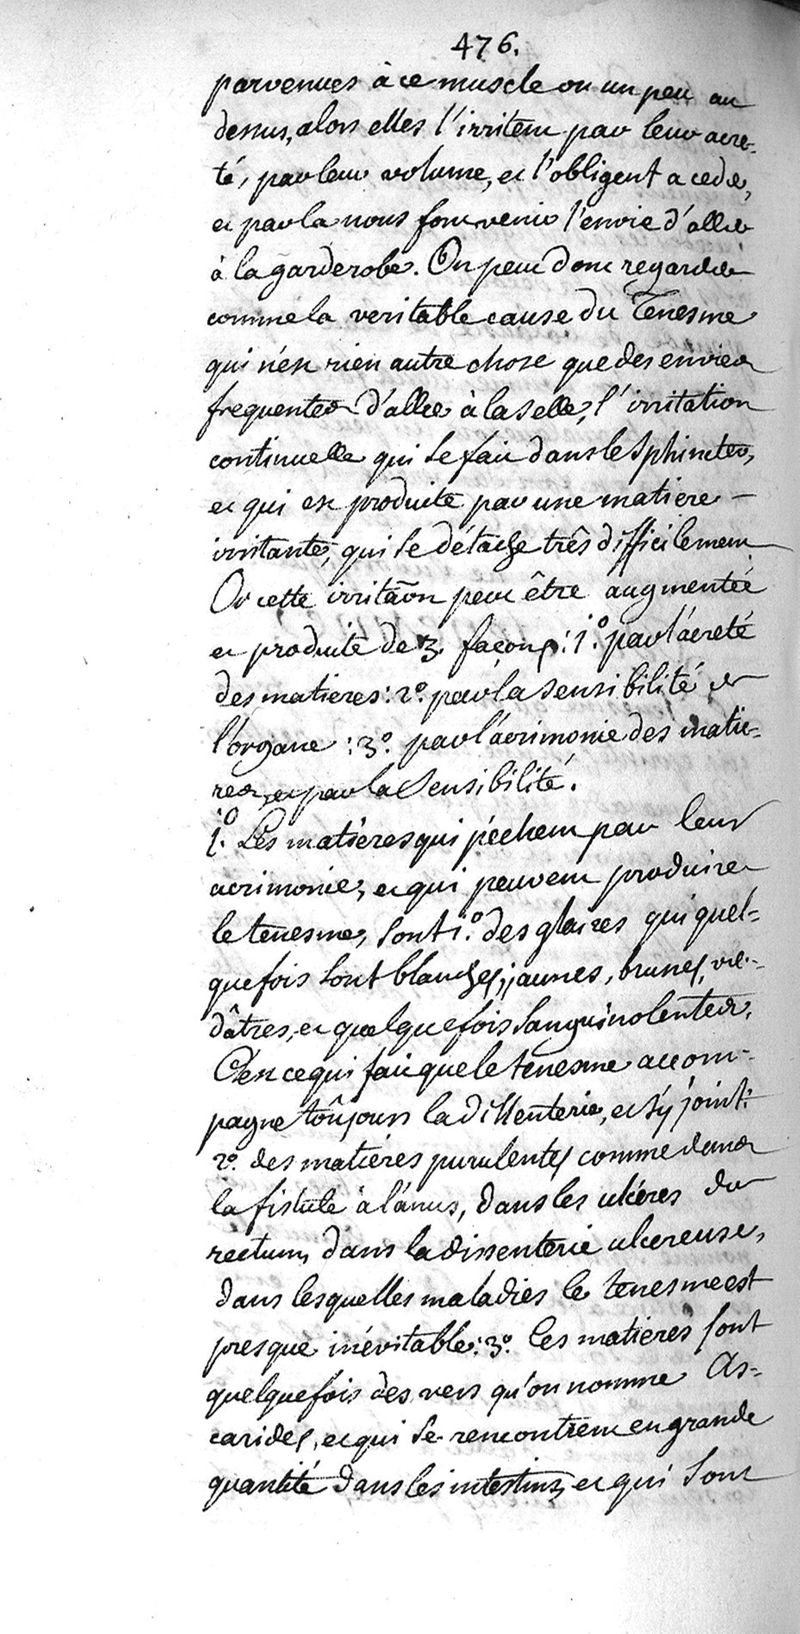 476.
parvenues à ce muscle ou un peu au
dessus, alors elles l'irritent par leur acre-
té, par leur volume, et l'obligent a ceder,
et par la nous font venir l'envie d'aller
à la garderobe. On peut donc regarder
comme la veritable cause du Tenesme
qui n'est rien autre chose que des envies
frequentes d'aller à la selle, l'irritation
continuelle qui se fait dans le Sphincter,
et qui est produite par une matiere –
irritante, qui se détache très difficilement
Or cette irritãon peut être augmentée
et produite de 3. façons: 1.° par l'âcreté
des matieres: 2.° par la sensibilité de
l'organe: 3.° par l'acrimonie des matie-
res, et par la Sensibilité.
1.° Les matières qui péchent par leur
acrimonie, et qui peuvent produire
le tenesme, sont 1.° des glaires qui quel-
que fois sont blanches, jaunes, brunes, ver-
dâtres, et quelque fois sanguinolentes.
C'est ce qui fait que le tenesme accom-
pagne toûjours la dissenterie, et s'y joint:
2.° des matières purulentes comme dans
la fistule à l'anus, dans les ulcéres du
rectum, dans la dissenterie ulcereuse,
dans lesquelles maladies le tenesme est
presque inévitable: 3.° les matieres sont
quelquefois des vers qu'on nomme As-
carides, et qui se rencontrent en grande
quantité dans les intestins, et qui sont